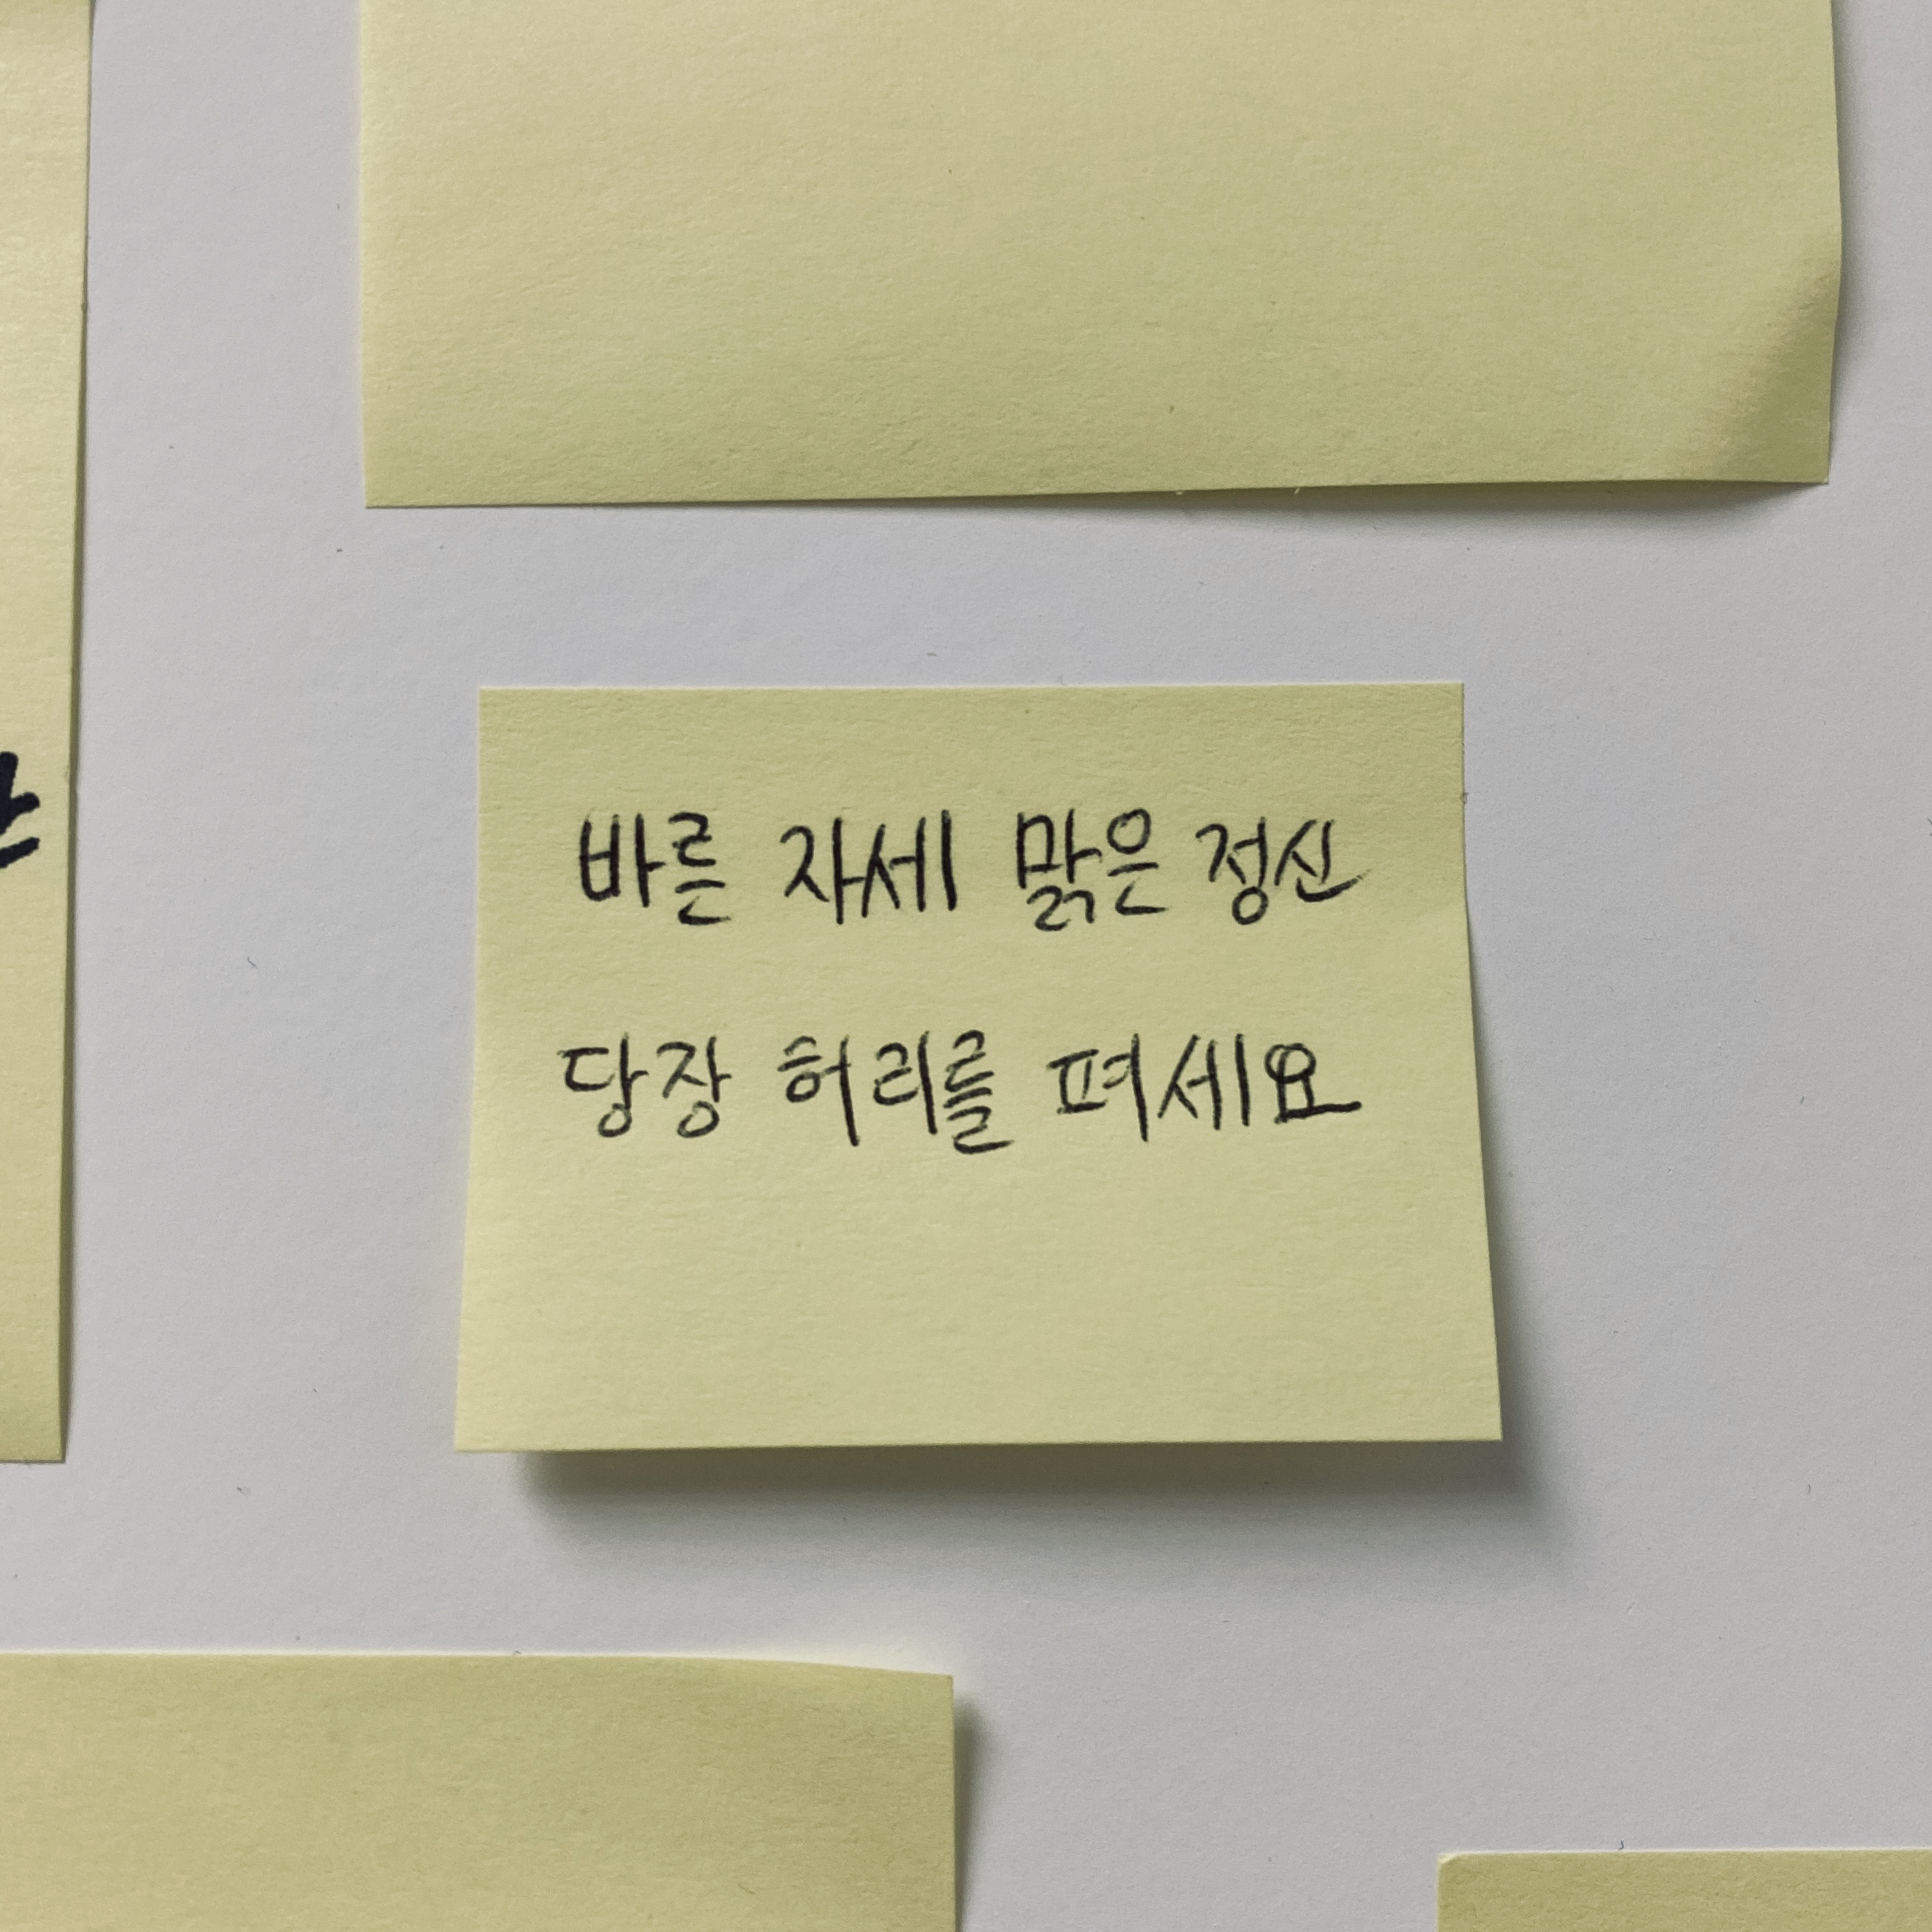 바른 자세 맑은 정신
당장 허리를 펴세요